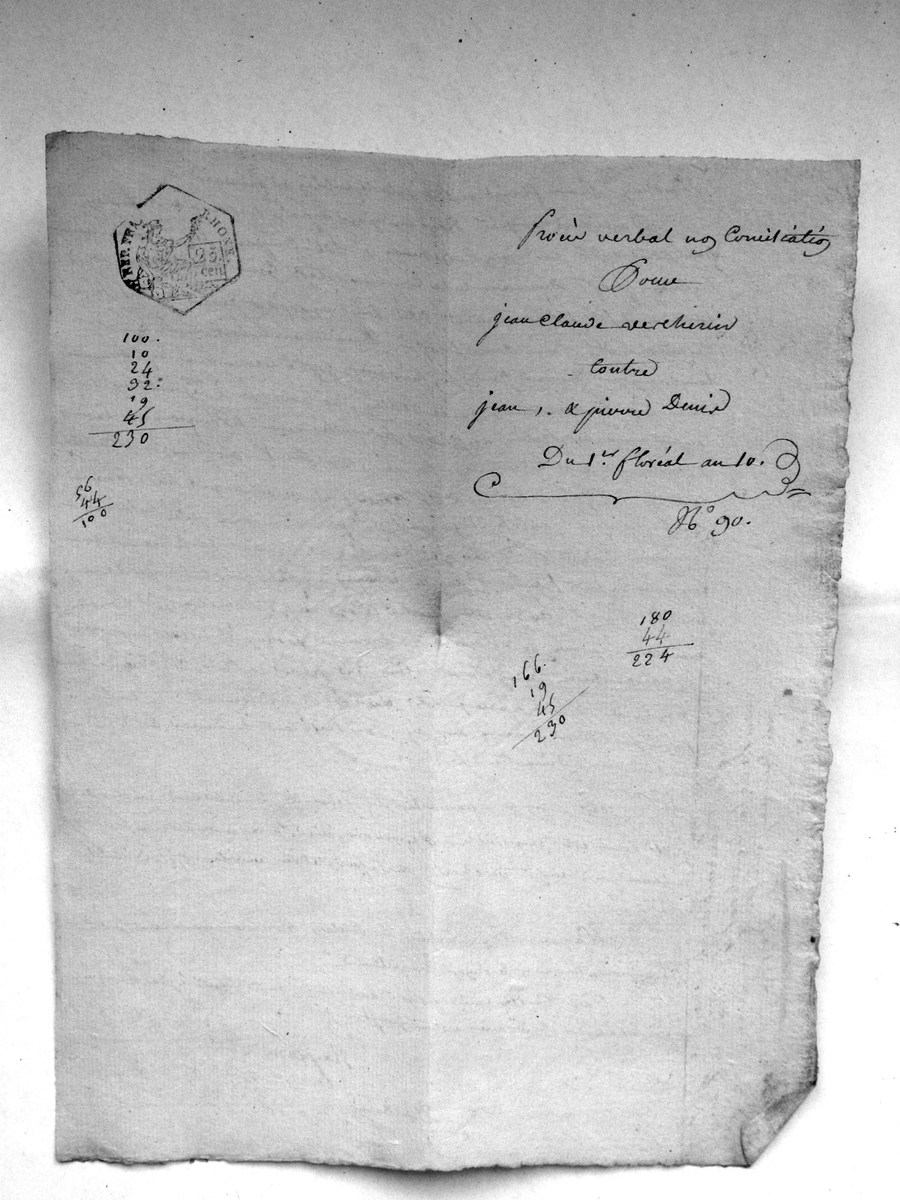 REP. FRA.
RHONE.
25
cen
100.
10
24
32.
19
45
230
56
44
100
Procès verbal non Conciliation
Pour
jean Claude vercherin
Contre
jean, & pierre Denis
Du 1.er floréal an 10.
No 90.
180
44
224
166.
19
45
230